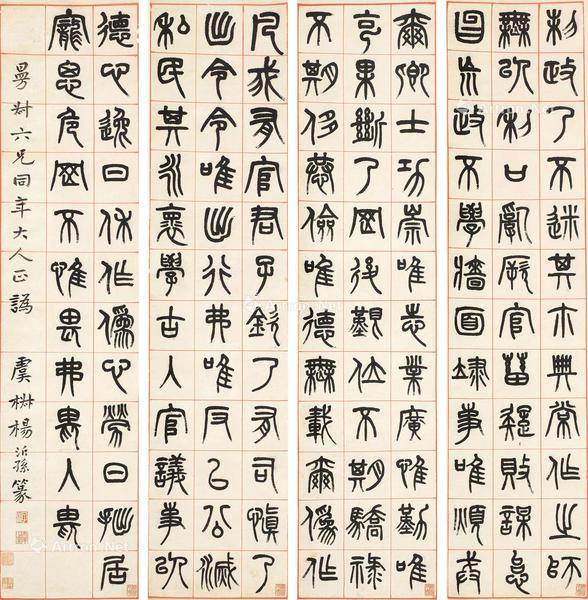 制政乃不迷其尒典常作之師
無以利口亂厥官蓄疑敗謀怠
忽荒政不學牆面莅事唯煩戒
爾卿士功崇唯志業廣惟勤唯
克果斷乃罔後艱位不期驕祿
不期侈恭儉唯德無載爾偽作
凡我有官君子欽乃有司慎乃
出令令唯出行弗唯反以公滅
私民其允懷學古入官議事以
德心逸日休作偽心勞日拙居
寵思危罔不惟畏弗畏入畏
六兄同年大人正譌 虞 楊沂孫篆